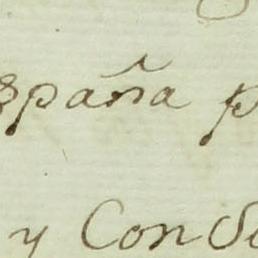 España p
y Con